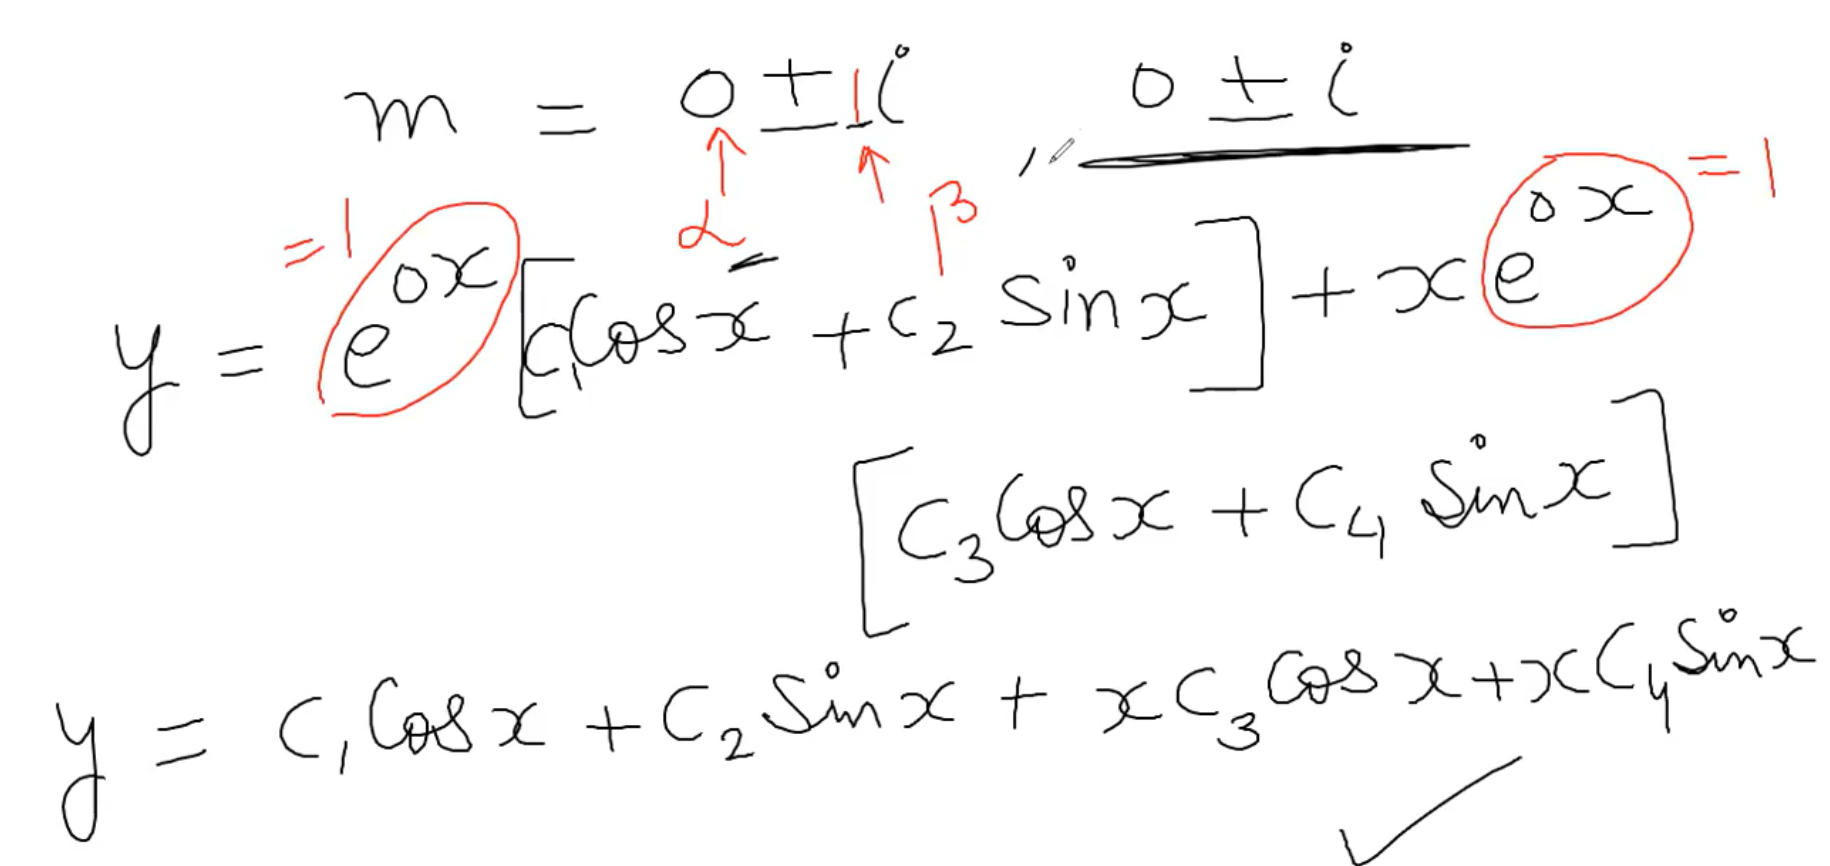 m = 0 ± 1i , 0 ± i
α β
= 1 = 1
y = e^{0x} [c₁ Cos x + c₂ Sin x] + x e^{0x}
[C₃ Cos x + C₄ Sin x]
y = C₁ Cos x + C₂ Sin x + x C₃ Cos x + x C₄ Sin x